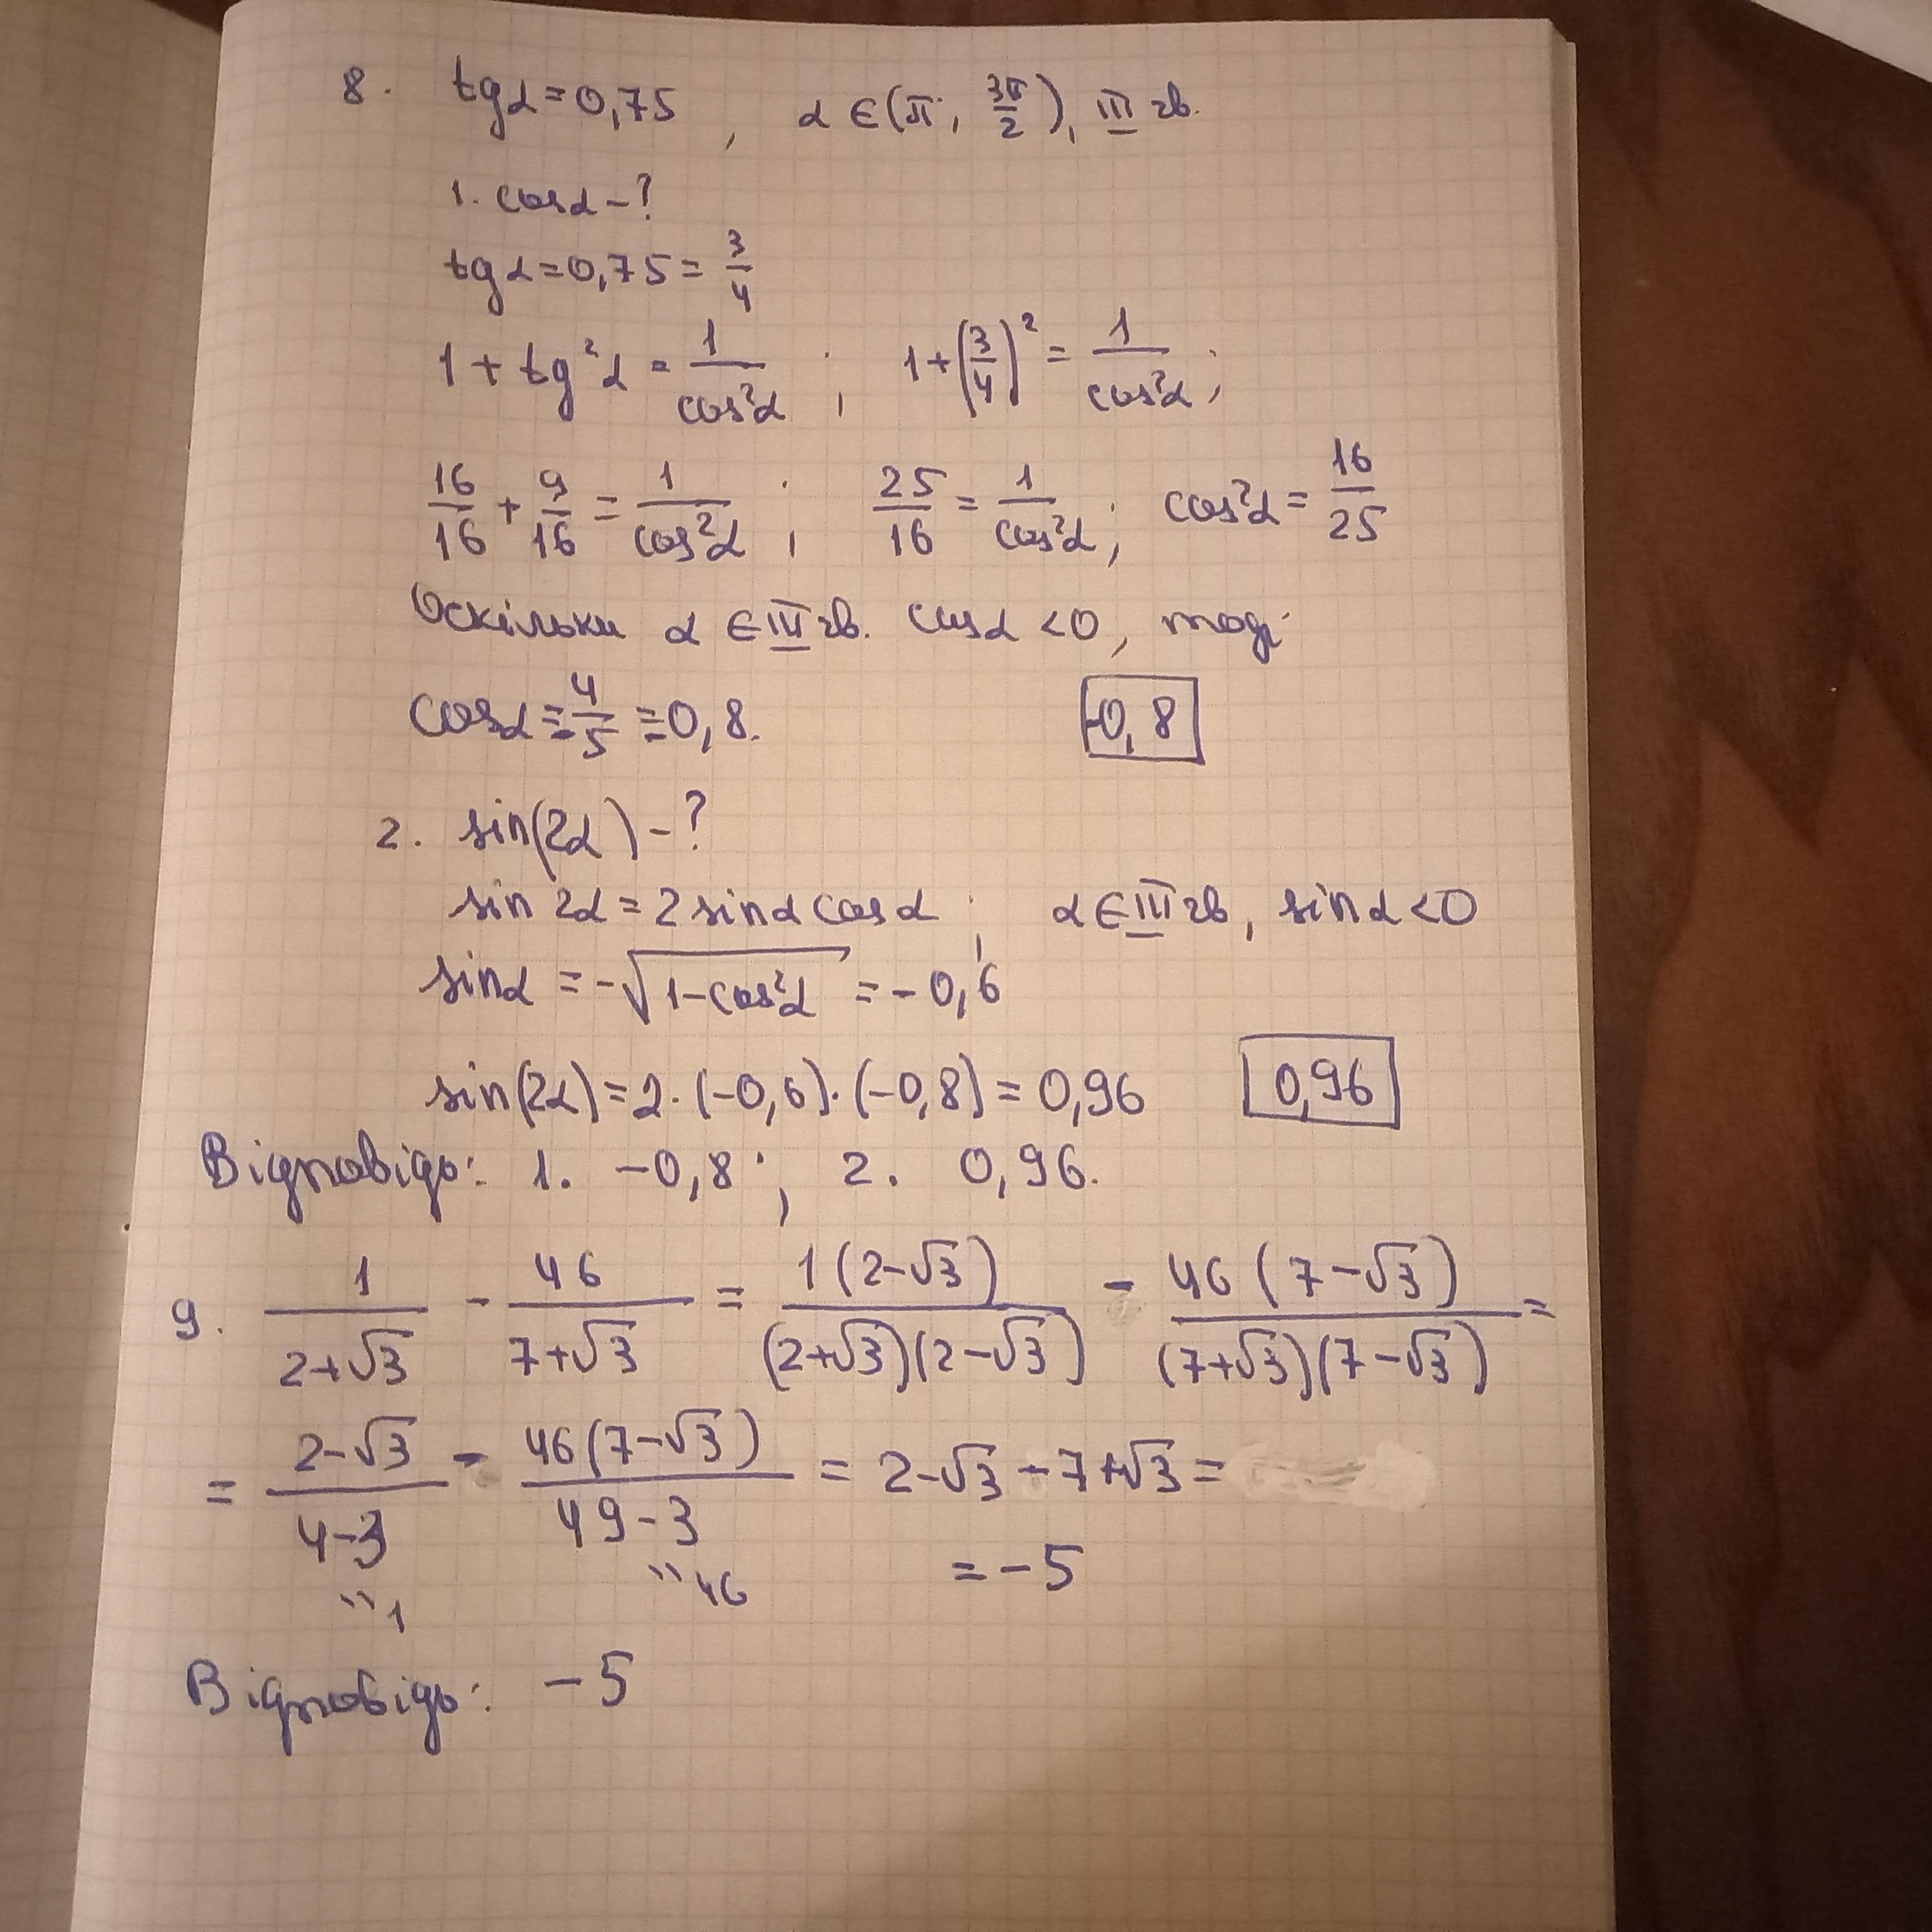 8. tgα=0,75, α∈(π; 3π/2), III чв.
1. cosα-?
tgα=0,75=3/4
1+tg²α=1/cos²α; 1+(3/4)²=1/cos²α;
16/16+9/16=1/cos²α; 25/16=1/cos²α; cos²α=16/25
Оскільки α∈III чв. cosα<0, тоді
cosα=-4/5=-0,8. -0,8
2. sin(2α)-?
sin2α=2sinαcosα; α∈III чв, sinα<0
sinα=-√(1-cos²α)=-0,6
sin(2α)=2·(-0,6)·(-0,8)=0,96 0,96
Відповідь: 1. -0,8; 2. 0,96.
9. 1/(2+√3) - 46/(7+√3) = 1(2-√3)/((2+√3)(2-√3)) - 46(7-√3)/((7+√3)(7-√3)) =
= (2-√3)/(4-3) - 46(7-√3)/(49-3) = 2-√3-7+√3=
"1 "46 =-5
Відповідь: -5